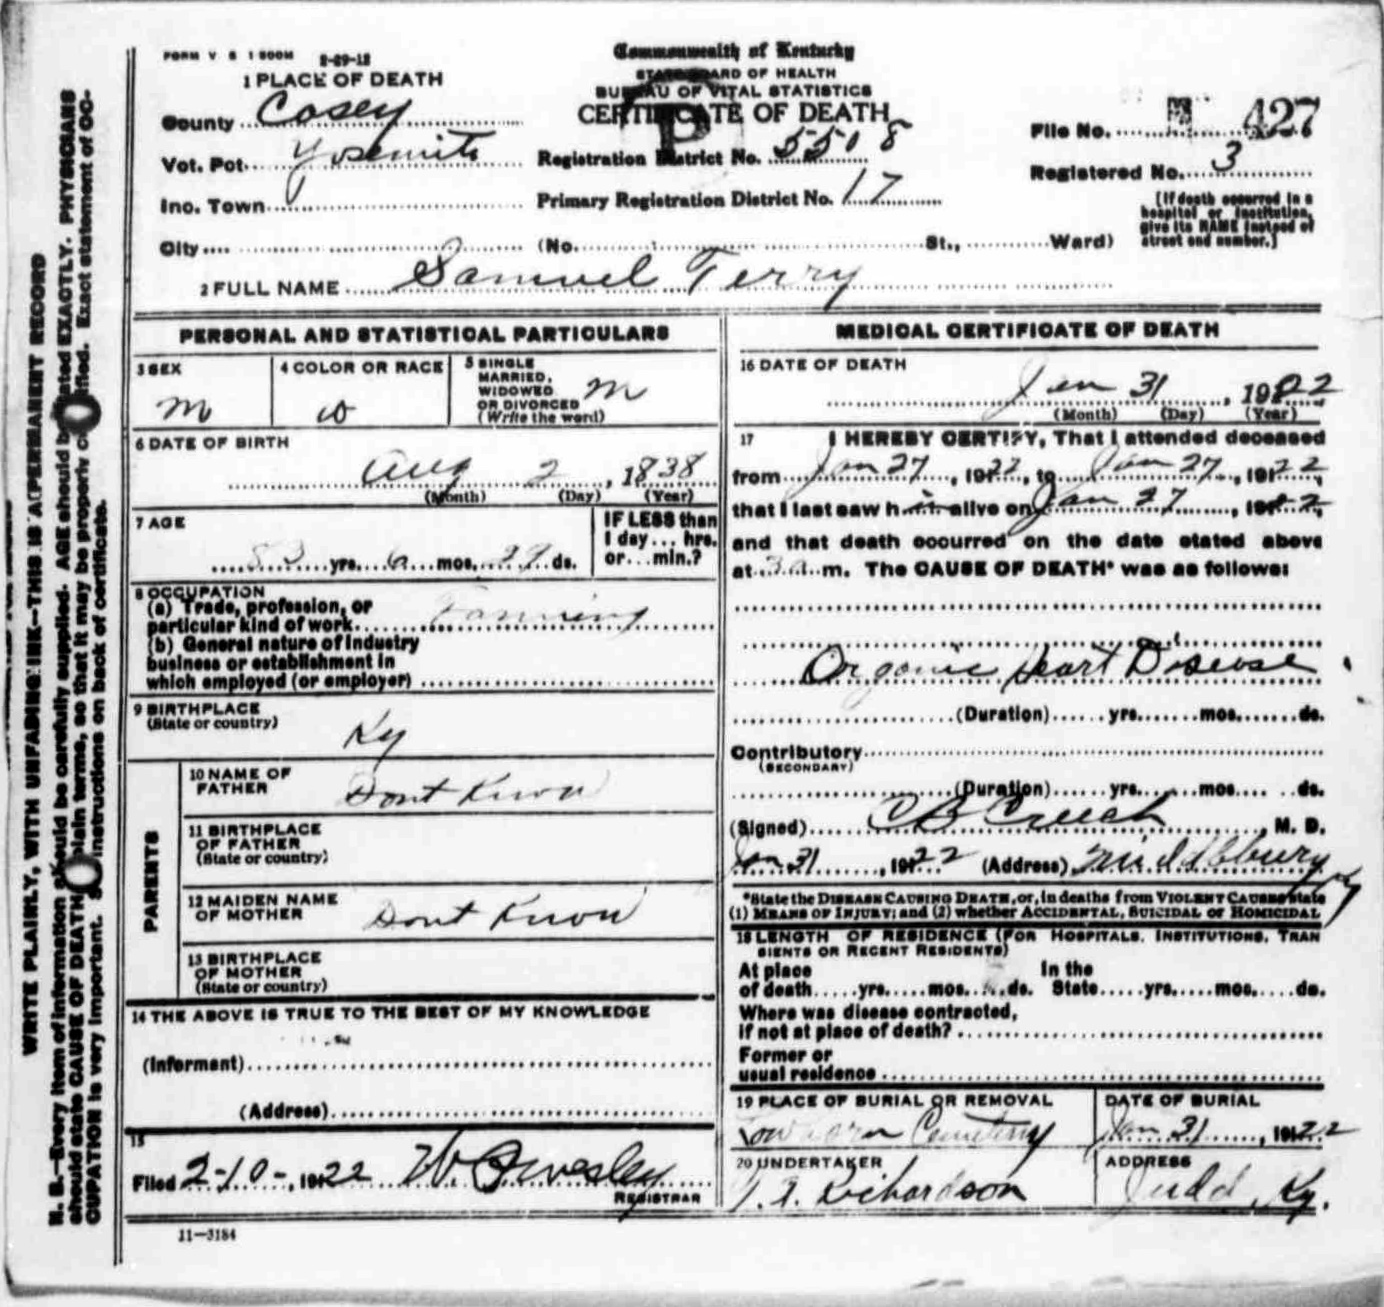 FORM V S 1 500M 2-29-12
Commonwealth of Kentucky
STATE BOARD OF HEALTH
BUREAU OF VITAL STATISTICS
CERTIFICATE OF DEATH
1 PLACE OF DEATH
County Casey
Vot. Pct. Yosemite
Inc. Town
City
Registration District No. 5508
Primary Registration District No. 17
(No. St., Ward)
File No. 427
Registered No. 3
(If death occurred in a
hospital or institution,
give its NAME instead of
street and number.)
2 FULL NAME Samuel Terry
PERSONAL AND STATISTICAL PARTICULARS
3 SEX
m
4 COLOR OR RACE
w
5 SINGLE
MARRIED,
WIDOWED
OR DIVORCED
(Write the word)
m
6 DATE OF BIRTH
Aug 2, 1838
(Month) (Day) (Year)
7 AGE
yrs. 6 mos. 29 ds.
IF LESS than
1 day... hrs.
or... min.?
8 OCCUPATION
(a) Trade, profession, or
particular kind of work Farming
(b) General nature of Industry
business or establishment in
which employed (or employer)
9 BIRTHPLACE
(State or country)
Ky
PARENTS
10 NAME OF
FATHER
Dont Know
11 BIRTHPLACE
OF FATHER
(State or country)
12 MAIDEN NAME
OF MOTHER
Dont Know
13 BIRTHPLACE
OF MOTHER
(State or country)
14 THE ABOVE IS TRUE TO THE BEST OF MY KNOWLEDGE
(Informant)
(Address)
15
Filed 2-10-, 1922
REGISTRAR
11-3184
MEDICAL CERTIFICATE OF DEATH
16 DATE OF DEATH
Jan 31, 1922
(Month) (Day) (Year)
17 I HEREBY CERTIFY, That I attended deceased
from Jan 27, 1922, to Jan 27, 1922
that I last saw him alive on Jan 27, 1922,
and that death occurred on the date stated above
at 3 a m. The CAUSE OF DEATH* was as follows:
Organic Heart Disease
(Duration) yrs. mos. ds.
Contributory
(SECONDARY)
(Duration) yrs. mos. ds.
(Signed) C B Creech, M. D.
Jan 31, 1922 (Address) Middleburg Ky
*State the DISEASE CAUSING DEATH, or, in deaths from VIOLENT CAUSES state
(1) MEANS OF INJURY; and (2) whether ACCIDENTAL, SUICIDAL or HOMICIDAL
18 LENGTH OF RESIDENCE (FOR HOSPITALS, INSTITUTIONS, TRAN
SIENTS OR RECENT RESIDENTS)
At place
of death yrs. mos. ds.
In the
State yrs. mos. ds.
Where was disease contracted,
if not at place of death?
Former or
usual residence
19 PLACE OF BURIAL OR REMOVAL
Cemetery
DATE OF BURIAL
Jan 31, 1922
20 UNDERTAKER
Richardson
ADDRESS
Judd, Ky.
WRITE PLAINLY, WITH UNFADING INK—THIS IS A PERMANENT RECORD
N. B.—Every item of information should be carefully supplied. AGE should be stated EXACTLY. PHYSICIANS
should state CAUSE OF DEATH in plain terms, so that it may be properly classified. Exact statement of OC-
CUPATION is very important. See instructions on back of certificate.